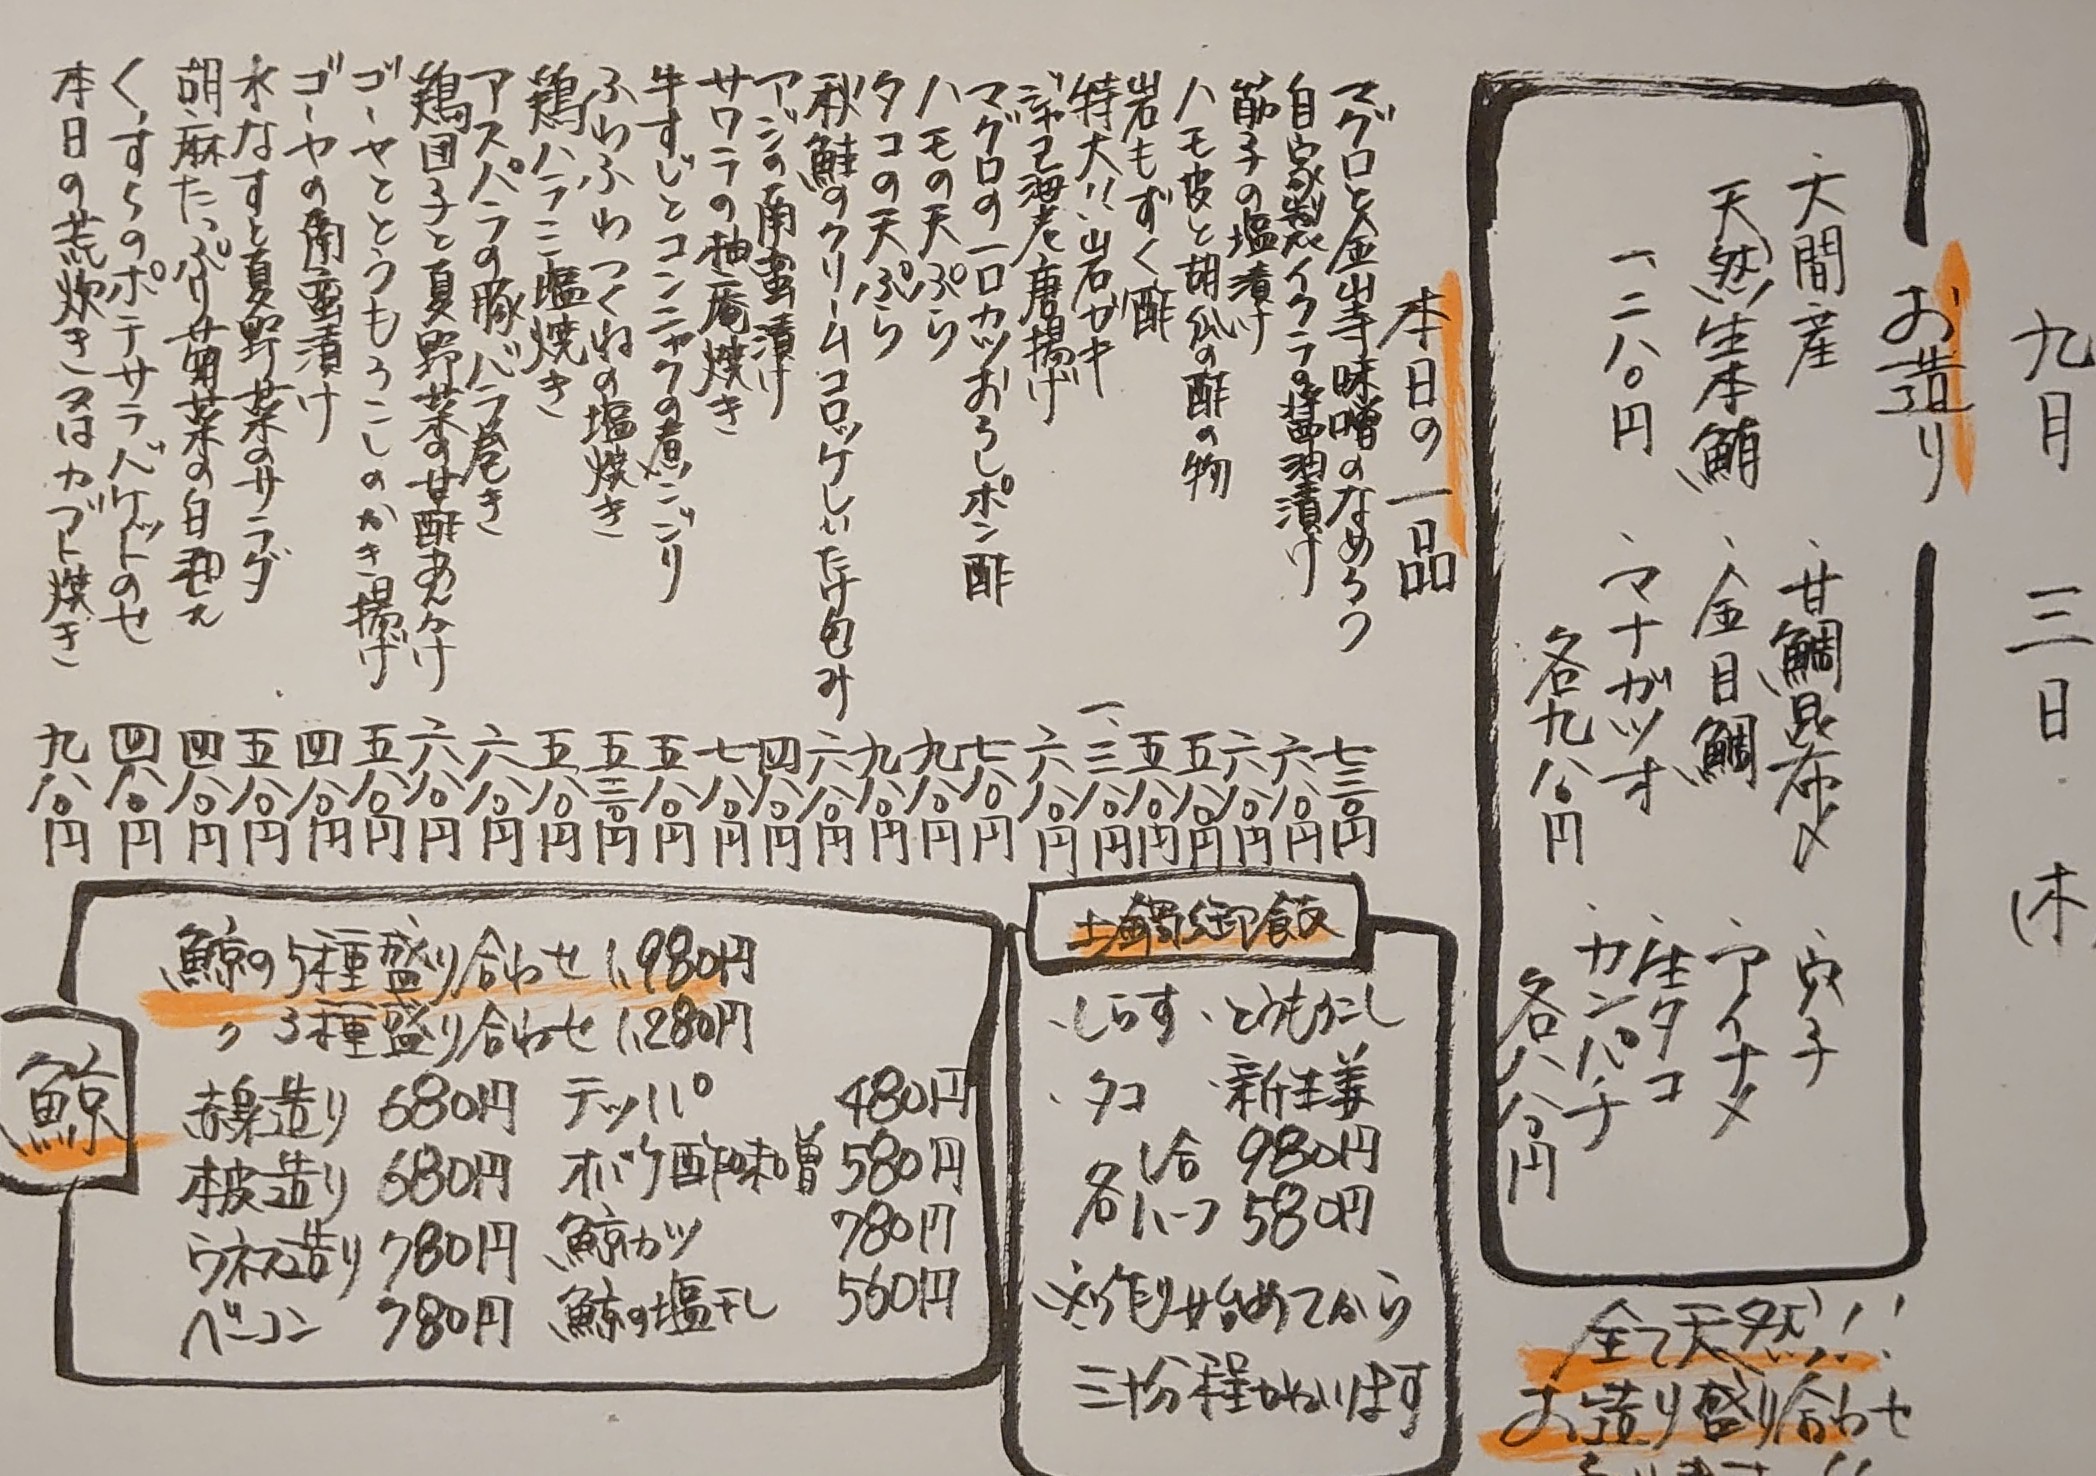 九月三日(木)
お造り
、大間産
天然生本鮪
一二八〇円
、甘鯛昆布〆
、金目鯛
、マナガツオ
各九八〇円
、穴子
、アイナメ
、生タコ
、カンパチ
各八八〇円
全て天然!!
お造り盛り合わせ
本日の一品
マグロと金山寺味噌のなめろう 七三〇円
自家製イクラの醤油漬け 六八〇円
筋子の塩漬け 六八〇円
ハモ皮と胡瓜の酢の物 五八〇円
岩もずく酢 五八〇円
特大!!岩ガキ 一、三八〇円
ジャコ海老唐揚げ 六八〇円
マグロの一口カツおろしポン酢 七八〇円
ハモの天ぷら 九八〇円
タコの天ぷら 九八〇円
秋鮭のクリームコロッケしいたけ包み 六八〇円
アジの南蛮漬け 四八〇円
サワラの柚庵焼き 七八〇円
牛すじとコンニャクの煮こごり 五八〇円
ふわふわつくねの塩焼き 五三〇円
鶏ハラミ塩焼き 五八〇円
アスパラの豚バラ巻き 六八〇円
鶏団子と夏野菜の甘酢あんかけ 六八〇円
ゴーヤととうもろこしのかき揚げ 五八〇円
ゴーヤの南蛮漬け 四八〇円
水なすと夏野菜のサラダ 五八〇円
胡麻たっぷり菊菜の白和え 四八〇円
くずらのポテサラバゲットのせ 四八〇円
本日の荒炊き又はカブト焼き 九八〇円
土鍋御飯
、しらす 、とうもろこし
、タコ 、新生姜
各1合 980円
各ハーフ 580円
※作り始めてから
三十分程かかります
鯨
鯨の5種盛り合わせ 1,980円
〃 3種盛り合わせ 1,280円
赤身造り 680円 テッパ 480円
本皮造り 680円 オバケ酢味噌 580円
ウネス造り 780円 鯨カツ 780円
ベーコン 780円 鯨の塩干し 560円